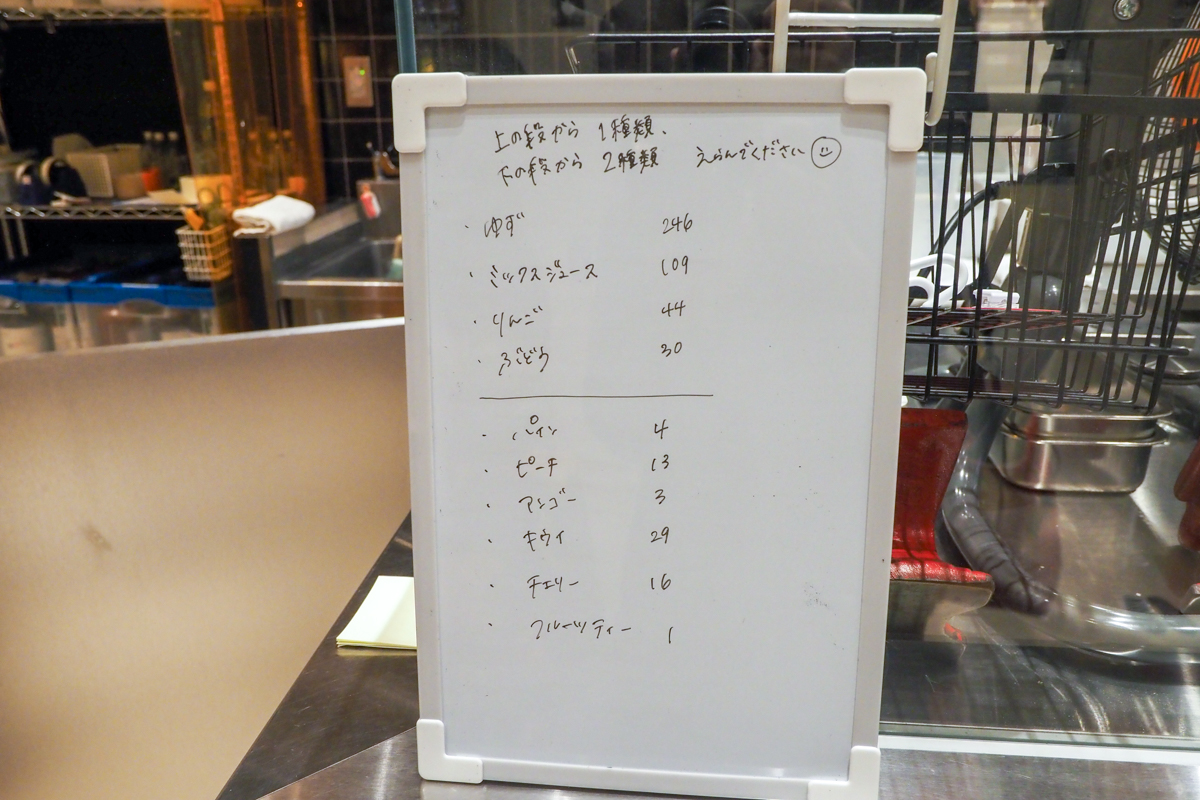 上の段から 1種類、
下の段から 2種類 えらんでください
・ゆず 246
・ミックスジュース 109
・りんご 44
・ぶどう 30
・パイン 4
・ピーチ 13
・マンゴー 3
・キウイ 29
・チェリー 16
・フルーツティー 1